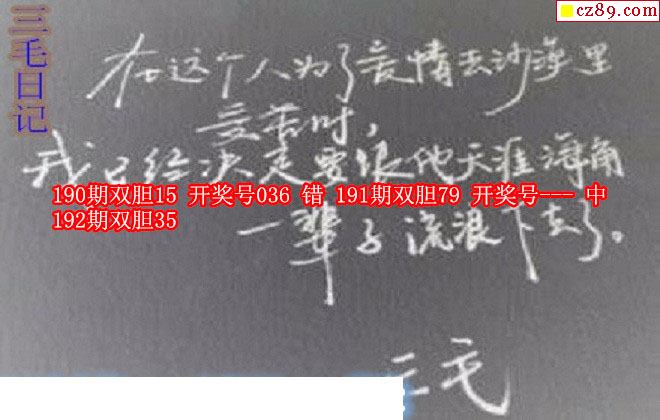 cz89.com
三毛日记
在这个人为了爱情去沙漠里
受苦时,
我已经决定要跟他天涯海角
190期双胆15 开奖号036 错 191期双胆79 开奖号--- 中
192期双胆35
一辈子流浪下去了。
三毛